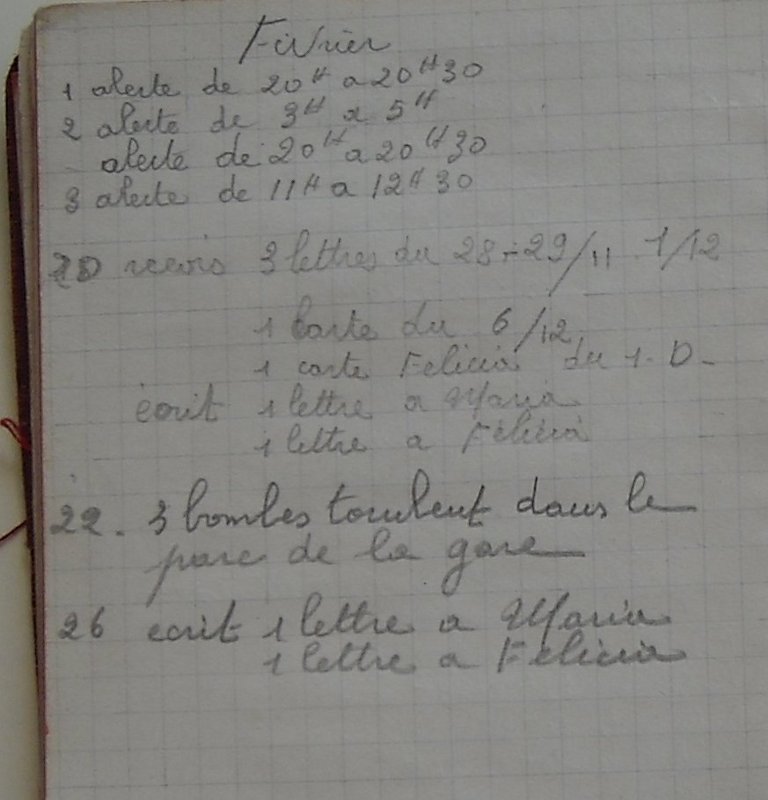 Février
1 alerte de 20H a 20H30
2 alerte de 3H a 5H
alerte de 20H a 20H30
3 alerte de 11H a 12H30
20 recois 3 lettres du 28-29/11 1/12
1 Carte du 6/12
1 carte Felicia du 1-D-
écrit 1 lettre a Maria
1 lettre a Félicia
22. 3 bombes tombent dans le
parc de la gare
26 ecrit 1 lettre a Maria
1 lettre a Félicia